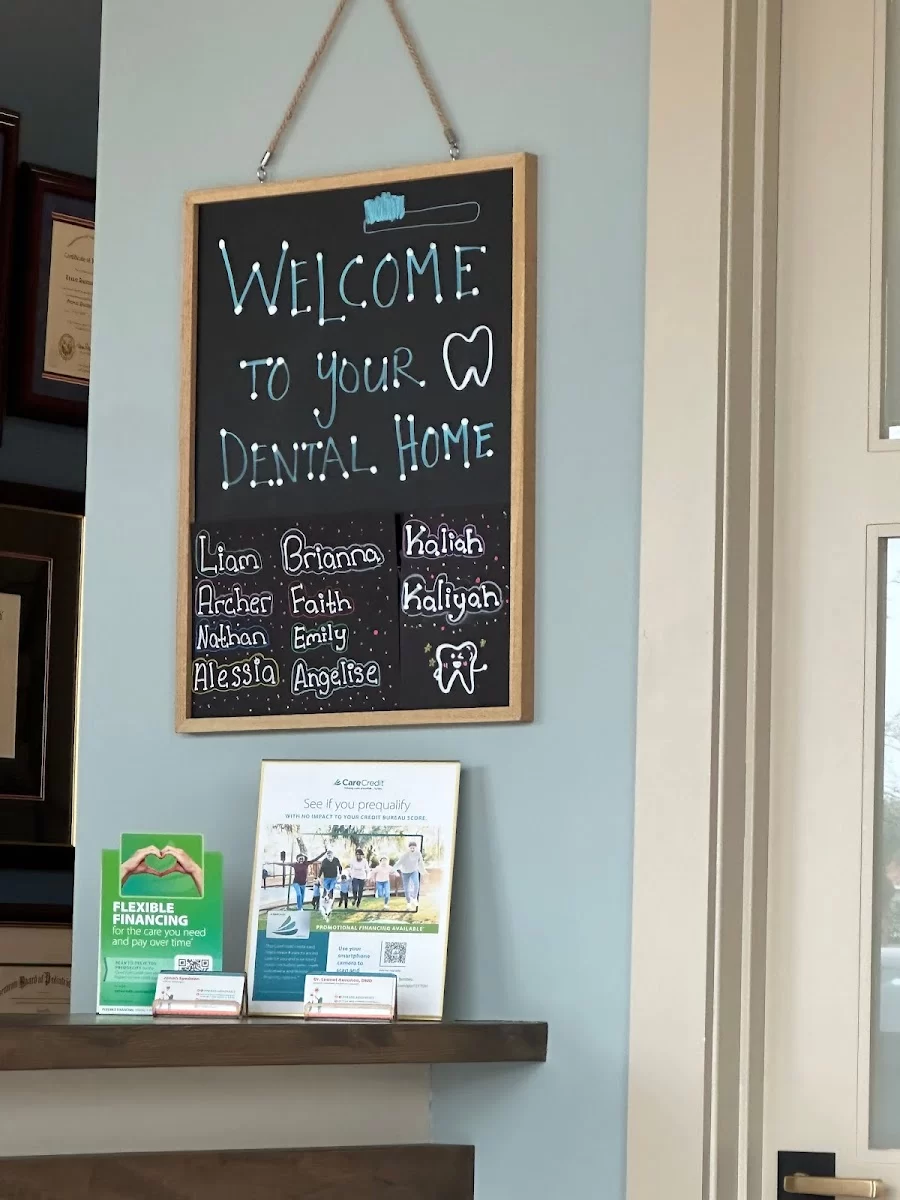 WELCOME
TO YOUR
DENTAL HOME
Liam Brianna Kaliah
Archer Faith Kaliyah
Nathan Emily
Alessia Angelise
CareCredit
See if you prequalify
WITH NO IMPACT TO YOUR CREDIT BUREAU SCORE.
PROMOTIONAL FINANCING AVAILABLE*
Use your
smartphone
camera to
scan and
FLEXIBLE
FINANCING
for the care you need
and pay over time*